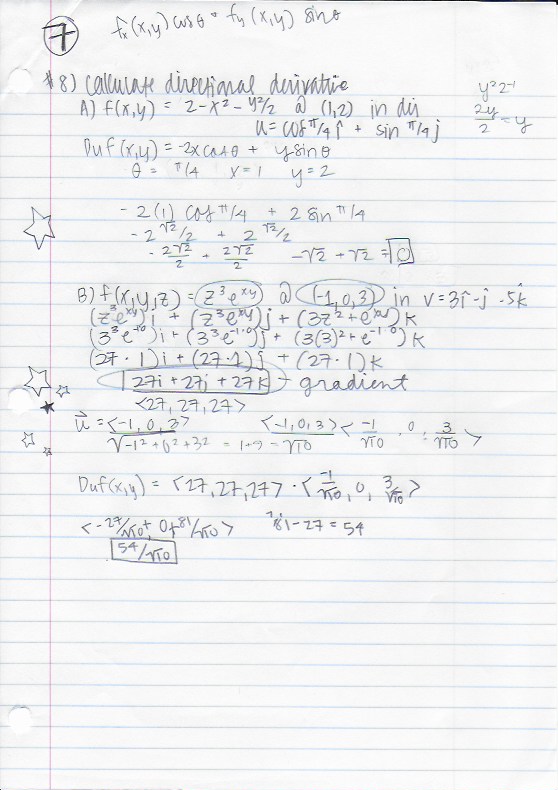 7
fx(x,y) cosθ + fy(x,y) sinθ
#8) Calculate directional derivative
y²2⁻¹
2y/2 = y
A) f(x,y) = 2-x²-y²/2 @ (1,2) in dir
u = cos π/4 î + sin π/4 j
Duf(x,y) = -2xcosθ + ysinθ
θ = π/4 x=1 y=2
-2(1) cos π/4 + 2 sin π/4
-2 √2/2 + 2 √2/2
-2√2/2 + 2√2/2 -√2 + √2 = 0
B) f(x,y,z) = z³e^xy @ (-1,0,3) in v=3î-j-5k
(z³e^xy)i + (z³e^xy)j + (3z²+e^xy)k
(3³e^-1·0)i + (3³e^-1·0)j + (3(3)²+e^-1·0)k
(27·1)i + (27·1)j + (27·1)k
27i + 27j + 27k - gradient
<27, 27, 27>
u = <-1,0,3> <-1,0,3> <-1/√10, 0, 3/√10>
√-1²+0²+3² = 1+9 = √10
Duf(x,y) = <27,27,27> · <-1/√10, 0, 3/√10>
<-27/√10 + 0 + 81/√10> 81-27 = 54
54/√10